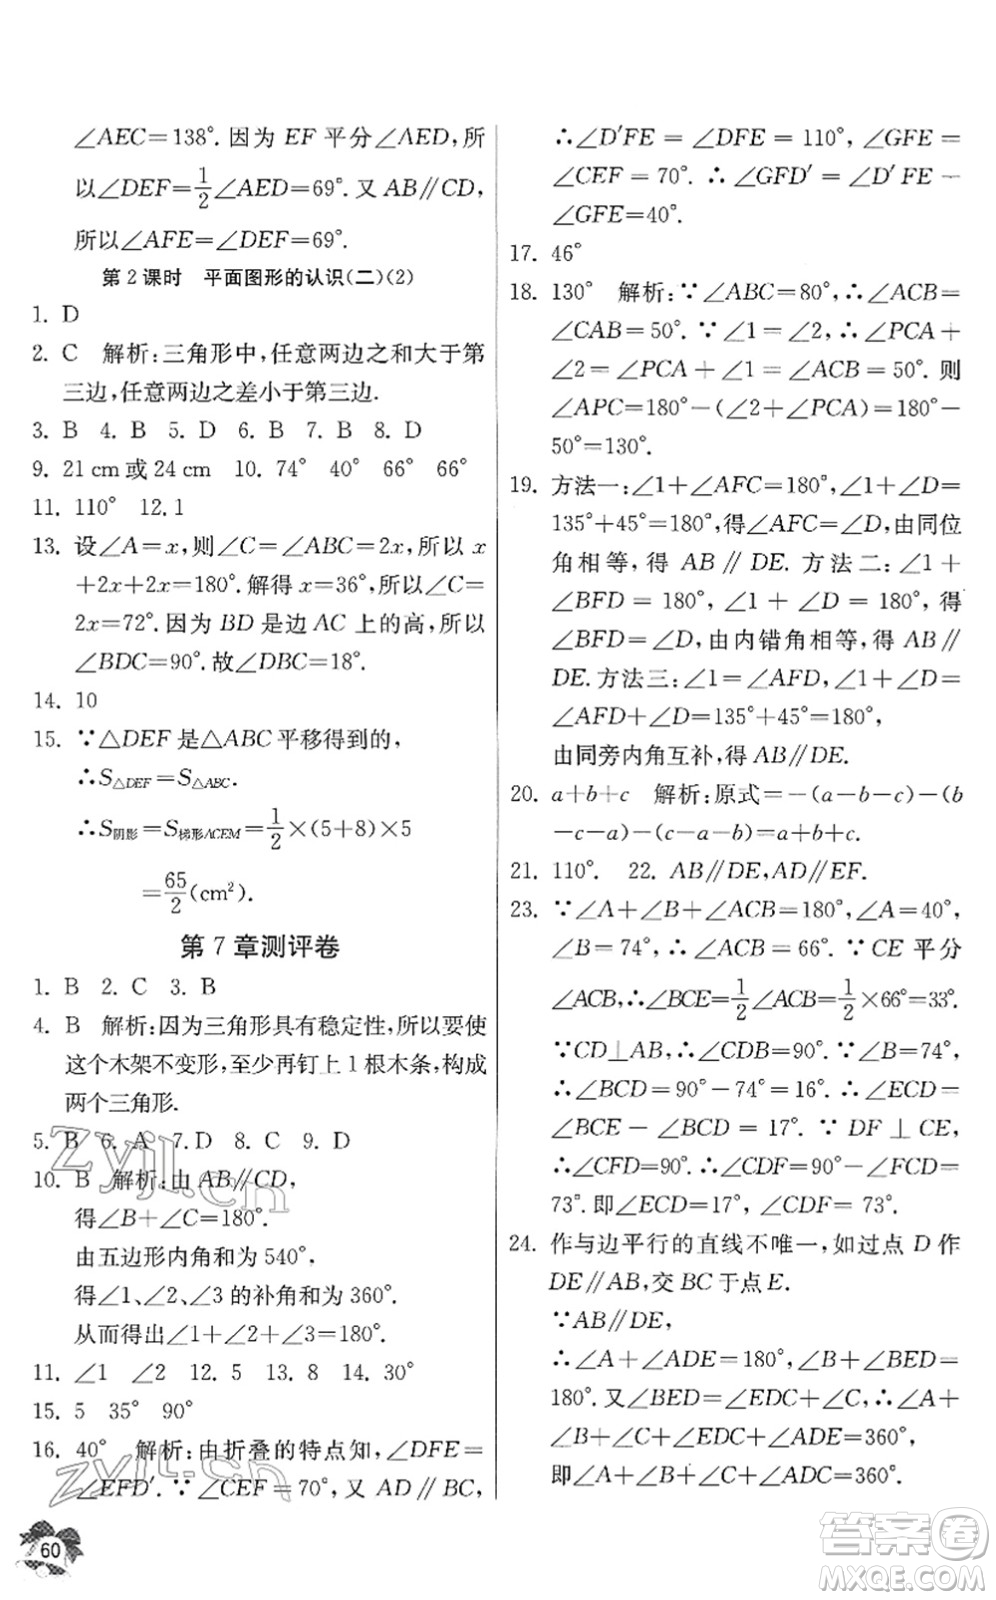 ∠AEC=138°. 因为 EF 平分∠AED, 所
以∠DEF=1/2∠AED=69°. 又 AB∥CD,
所以∠AFE=∠DEF=69°.
第 2 课时 平面图形的认识(二)(2)
1. D
2. C 解析:三角形中,任意两边之和大于第
三边,任意两边之差小于第三边.
3. B 4. B 5. D 6. B 7. B 8. D
9. 21 cm 或 24 cm 10. 74° 40° 66° 66°
11. 110° 12. 1
13. 设∠A=x, 则∠C=∠ABC=2x, 所以 x
+2x+2x=180°. 解得 x=36°, 所以∠C=
2x=72°. 因为 BD 是边 AC 上的高, 所以
∠BDC=90°. 故∠DBC=18°.
14. 10
15. ∵△DEF 是△ABC 平移得到的,
∴S△DEF=S△ABC.
∴S阴影=S梯形ACEM=1/2×(5+8)×5
=65/2(cm²).
第 7 章测评卷
1. B 2. C 3. B
4. B 解析:因为三角形具有稳定性,所以要使
这个木架不变形,至少再钉上 1 根木条,构成
两个三角形.
5. B 6. A 7. D 8. C 9. D
10. B 解析:由 AB∥CD,
得∠B+∠C=180°.
由五边形内角和为 540°,
得∠1、∠2、∠3 的补角和为 360°.
从而得出∠1+∠2+∠3=180°.
11. ∠1 ∠2 12. 5 13. 8 14. 30°
15. 5 35° 90°
16. 40° 解析:由折叠的特点知,∠DFE=
∠EFD′. ∵∠CEF=70°, 又 AD∥BC,
60
∴∠D′FE=∠DFE=110°, ∠GFE=
∠CEF=70°. ∴∠GFD′=∠D′FE-
∠GFE=40°.
17. 46°
18. 130° 解析:∵∠ABC=80°, ∴∠ACB
=∠CAB=50°. ∵∠1=∠2, ∴∠PCA+
∠2=∠PCA+∠1=∠ACB=50°. 则
∠APC=180°-(∠2+∠PCA)=180°-
50°=130°.
19. 方法一:∠1+∠AFC=180°, ∠1+∠D=
135°+45°=180°, 得∠AFC=∠D, 由同位
角相等, 得 AB∥DE. 方法二:∠1+
∠BFD=180°, ∠1+∠D=180°, 得
∠BFD=∠D, 由内错角相等, 得 AB∥
DE. 方法三:∠1=∠AFD, ∠1+∠D=
∠AFD+∠D=135°+45°=180°,
由同旁内角互补,得 AB∥DE.
20. a+b+c 解析:原式=-(a-b-c)-(b
-c-a)-(c-a-b)=a+b+c.
21. 110°. 22. AB∥DE,AD∥EF.
23. ∵∠A+∠B+∠ACB=180°, ∠A=40°,
∠B=74°, ∴∠ACB=66°. ∵CE 平分
∠ACB, ∴∠BCE=1/2∠ACB=1/2×66°=33°.
∵CD⊥AB, ∴∠CDB=90°. ∵∠B=74°,
∴∠BCD=90°-74°=16°. ∴∠ECD=
∠BCE-∠BCD=17°. ∵DF⊥CE,
∴∠CFD=90°. ∴∠CDF=90°-17°=
73°. 即∠ECD=17°, ∠CDF=73°.
24. 作与边平行的直线不唯一,如过点 D 作
DE∥AB, 交 BC 于点 E.
∵AB∥DE,
∴∠A+∠ADE=180°, ∠B+∠BED=
180°. 又∠BED=∠EDC+∠C, ∴∠A+
∠B+∠C+∠EDC+∠ADE=360°,
即∠A+∠B+∠C+∠ADC=360°.
Zyjl.cn
Zyjl.cn
答案圈
MXQE.COM